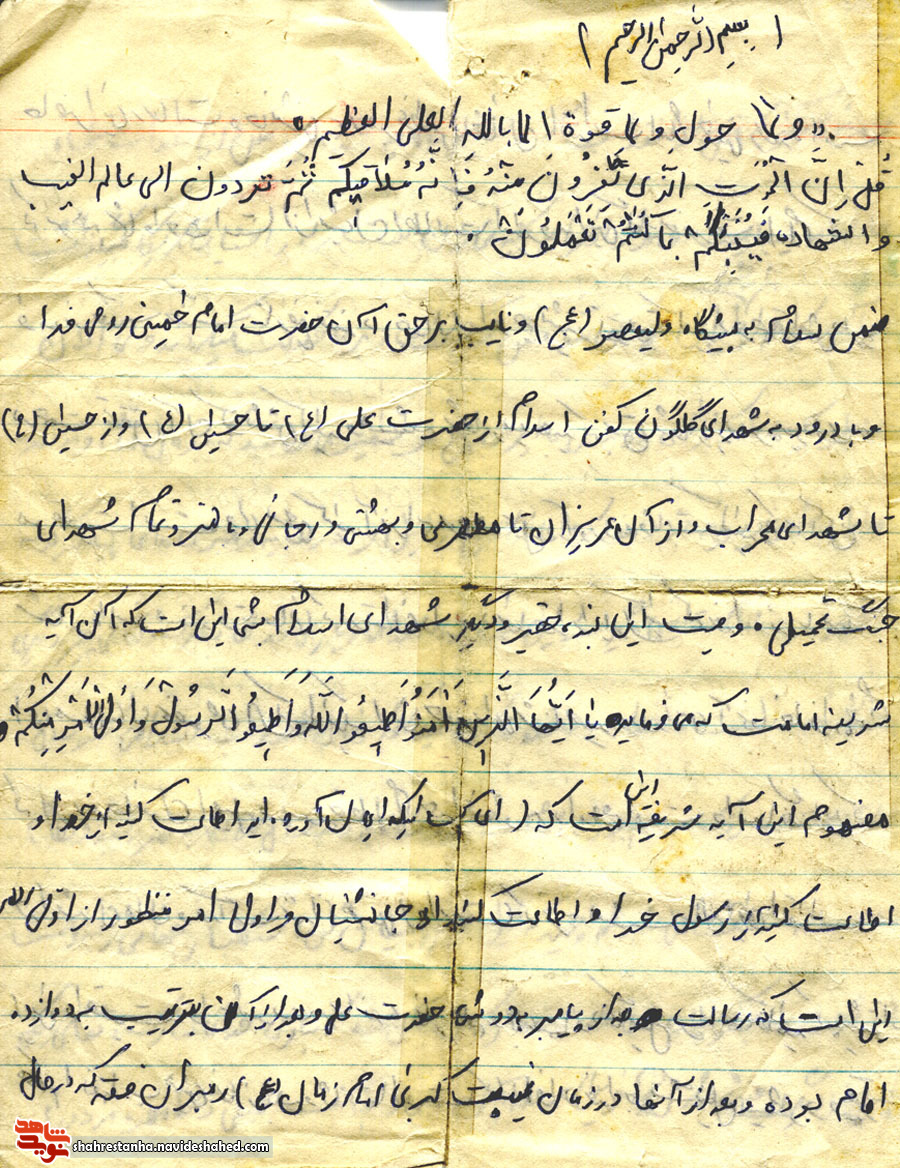 ( بسم الرحمن الرحیم )
«ولا حول ولا قوة الا بالله العلی العظیم»
قُل اِنَّ المَوتَ الَّذی تَفِرُّونَ مِنْهُ فَاِنَّهُ مُلاقیکُم ثُمَّ تردون الی عالم الغیب
والشهاده فَیُنَبِّئُکُمْ بِما کُنْتُمْ تَعْمَلُونْ.
ضمن سلام به پیشگاه ولیعصر (عج) و نایب بر حق آن حضرت امام خمینی روحی فدا
و با درود به شهدای گلگون کفن اسلام از حضرت علی (ع) تا حسین (ع) و از حسین (ع)
تا شهدای محراب و از آن عزیزان تا مطهری و بهشتی و رجائی و باهنر و تمام شهدای
جنگ تحمیلی. وصیت این بنده حقیر و دیگر شهدای اسلام بشما این است که آن آیه
شریفه امامت که می فرماید یا اَیُّهَا الَّذینَ آمَنُو اَطیعُو اللَّهَ وَ اَطیعُو الرَسُولْ وَ اُولِی الْاَمْرِ مِنْکُمْ
مفهوم این آیه شریفه این است که (ای کسانیکه ایمان آورده اید اطاعت کنید از خدا و
اطاعت کنید از رسول خدا و اطاعت کنید از جانشینان و اولی امر منظور از اولی الامر
این است که رسالت بعد از پیامبر به دوش حضرت علی و بعد از آن بترتیب به دوازده
امام بوده و بعد از آنها در زمان غیبت کبرای امام زمان (عج) رهبران فقه که در حال
نوید شاهد
shahrestanha.navideshahed.com